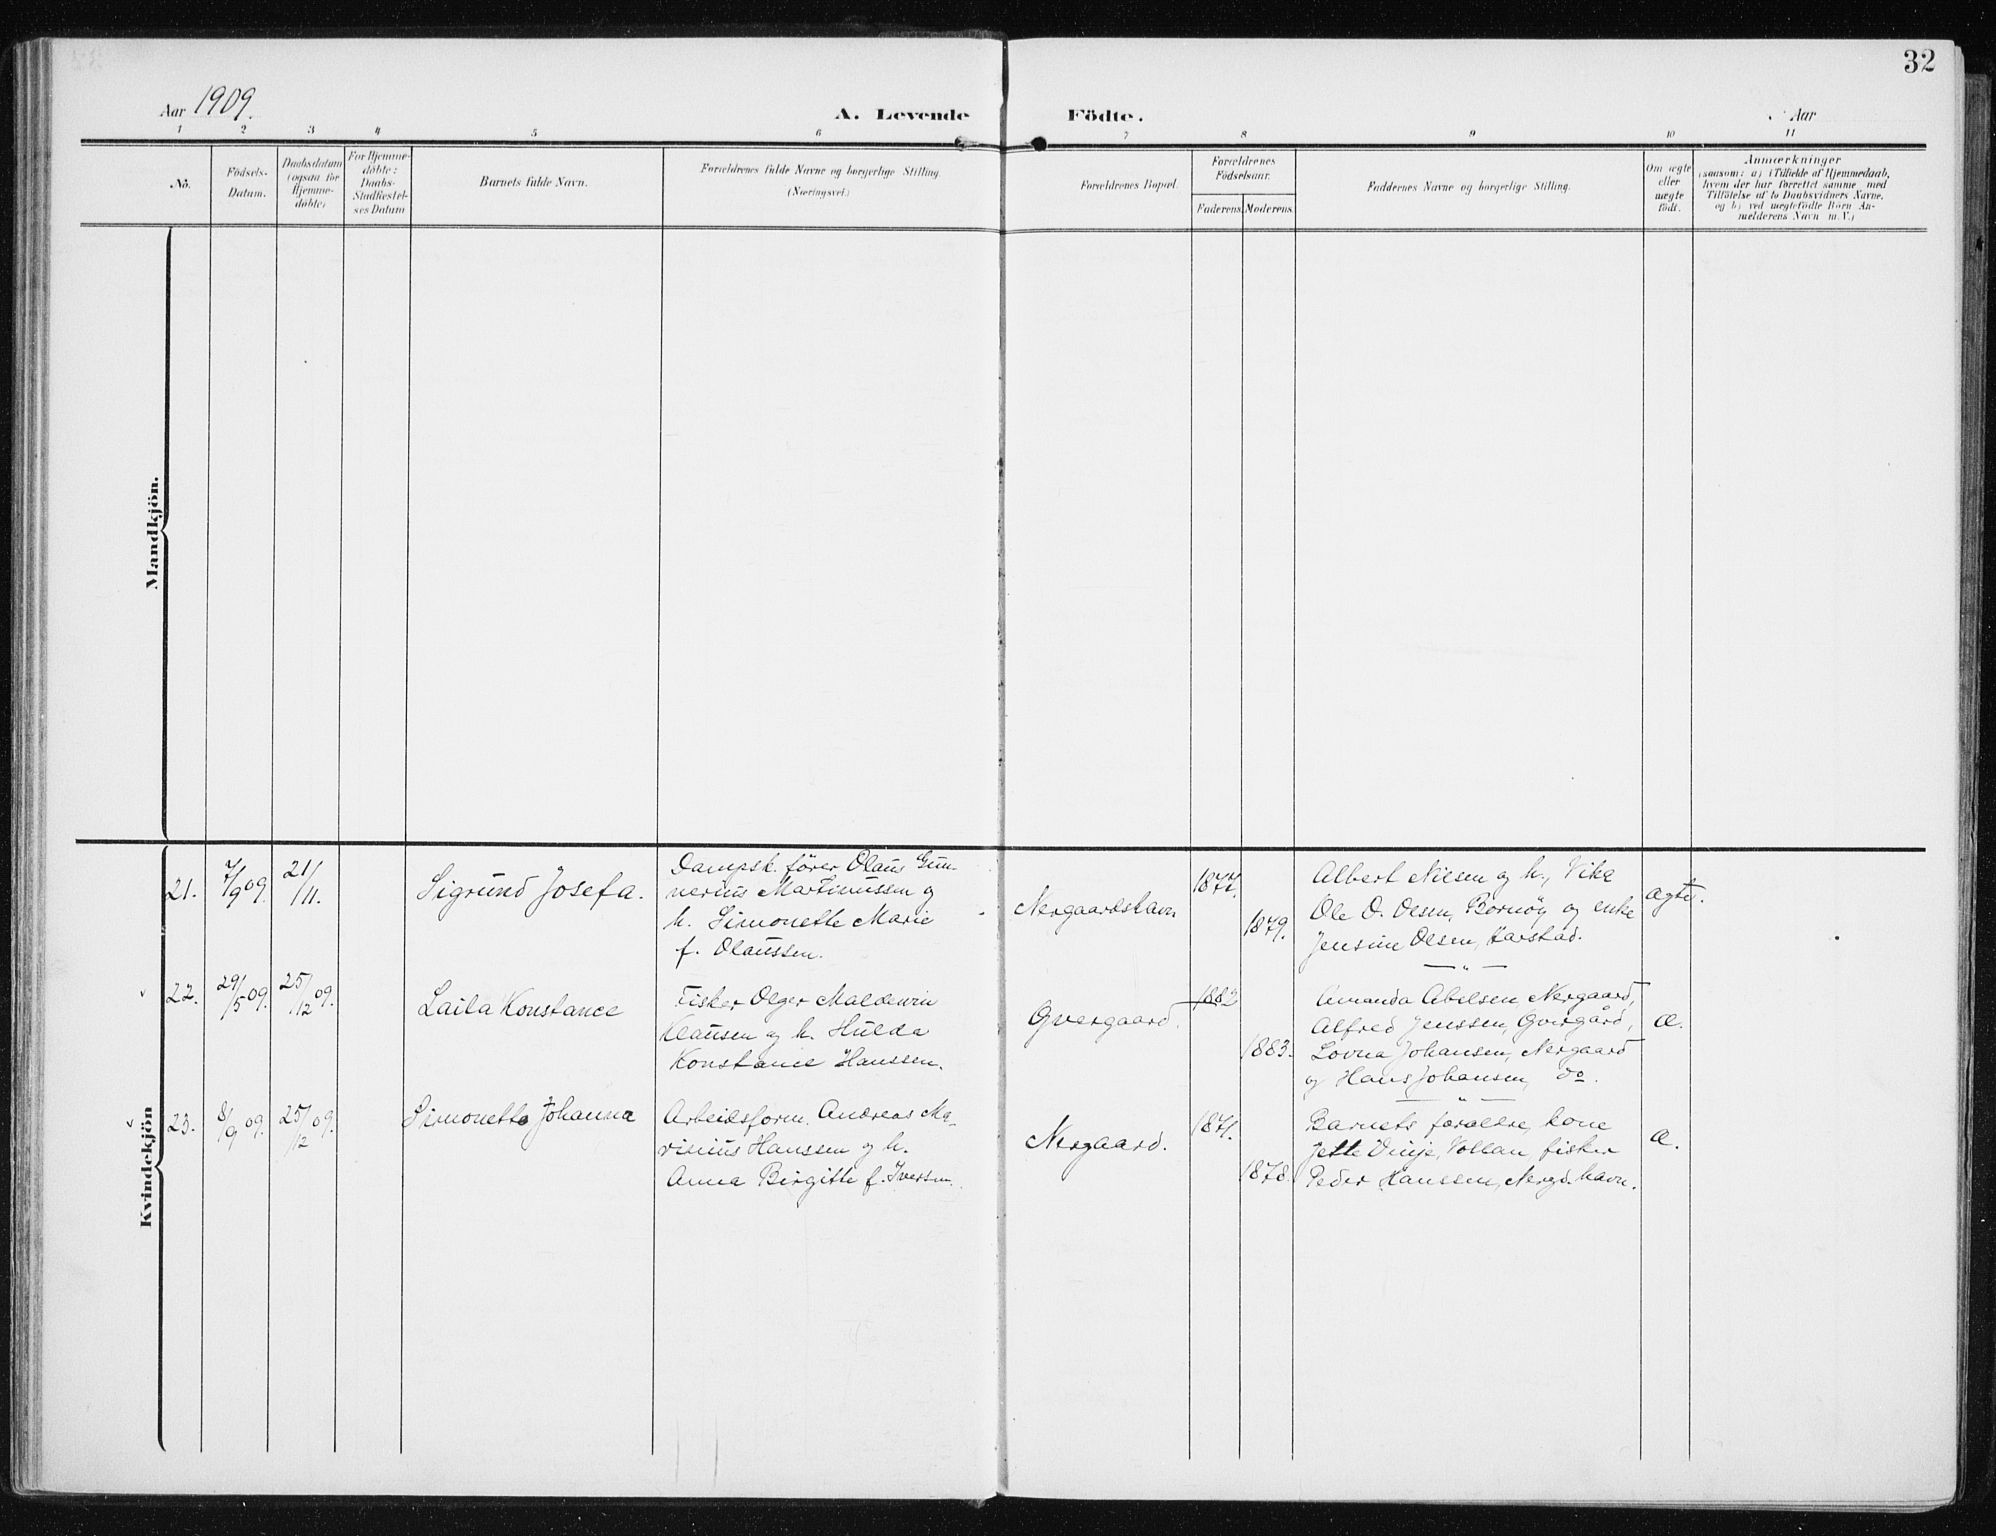 32
Aar 1909.
A. Levende Födte.
Aar
1 2 3 4 5 6 7 8 9 10 11
No.
Födsels-
Datum.
Daabsdatum
(ogsaa for
Hjemme-
döbte)
For Hjemme-
döbte:
Daabs-
Stadfæstel-
ses Datum
Barnets fulde Navn.
Forældrenes fulde Navne og borgerlige Stilling.
(Næringsvei.)
Forældrenes Bopæl.
Forældrenes
Födselsaar.
Faderens. Moderens.
Faddernes Navne og borgerlige Stilling.
Om ægte
eller
uægte
födt.
Anmærkninger
(saasom: a) i Tilfælde af Hjemmedaab,
hvem der har forrettet samme med
Tilföielse af to Daabsvidners Navne,
og b) ved uægtefödte Börn An-
melderens Navn m. V.)
Mandkjön.
Kvindekjön
21.
7/9 09.
21/11.
Sigrund Josefa.
Dampsk. förer Olaus Gun-
nerius Martinussen og
h. Simonette Marie
f. Olaussen.
Nergaardshavn
1877.
1879.
Albert Nilsen og h., Vika
Ole O. Olsen, Bornöy og enke
Jensine Olsen, Harstad.
ægte.
22.
29/5 09.
25/12 09.
Laila Konstance
Fisker Olger Maldewin
Klausen og h. Hulda
Konstance Hanssen.
Qvergaard.
1882
1883.
Amanda Abelsen Nergaard,
Alfred Jenssen, Qvergård,
Lovna Johansen, Nergaard
og Hans Johansen, do.
Æ.
23.
8/9 09.
25/12 09.
Simonette Johanna
Arbeidsform. Andreas Ma-
rinius Hanssen og h.
Anna Birgitte f. Iversen.
Nergaard.
1871.
1878.
Barnets forældre, kone
Jette Vinje, Vollan, fisker
Peder Hanssen, Nergd.havn.
Æ.